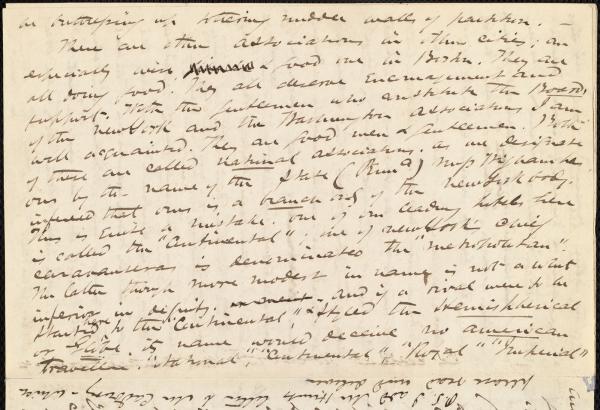 or buttressing up tottering mudden walls of partition. —
There are other associations in other cities; an
especially wise & good one in Boston. They are
all doing good. They all deserve encouragement and
support. With the gentlemen who constitute the Boards
of the New York and the Washington associations I am
well acquainted. They are good men & gentlemen. Both
of these are called national associations. as we designate
ours by the name of the State (Penna)
inferred that ours is a branch only of the New York body.
This is quite a mistake. one of our leading hotels here
is called the "Continental"; one of New York's chief
caravanseras is denominated the "metropolitan".
The latter though more modest in name is not a whit
inferior in dignity. and if a rival were to be
started to the "Continental," & styled the Hemispherical
or Globe its name would deceive no american
traveller. "National," "Continental," "Royal" "Imperial"